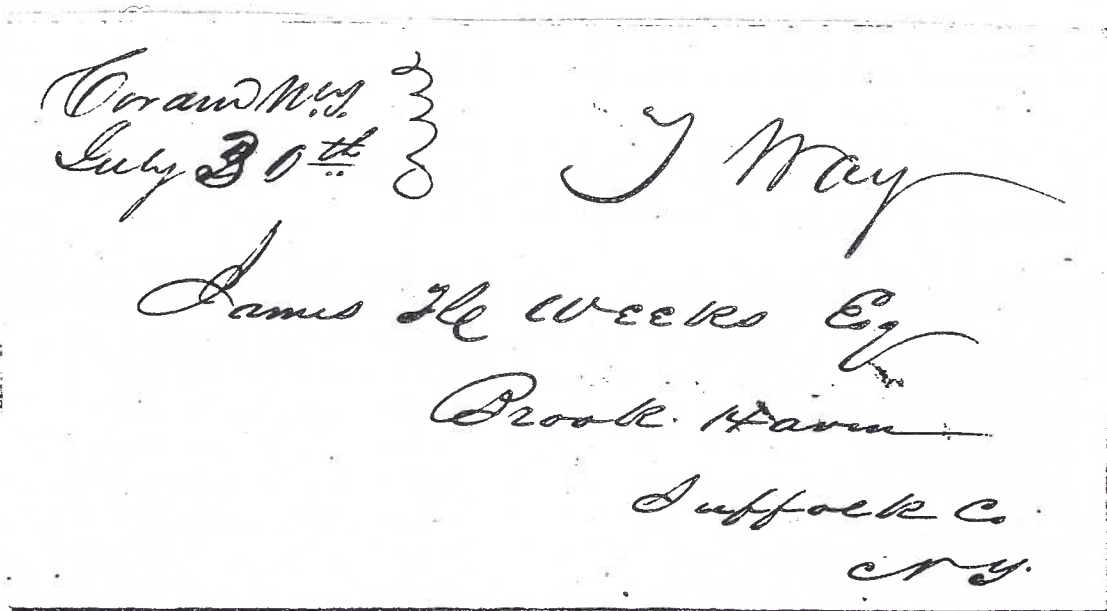 Coram N.Y.
July 30th
T Way
James H Weeks Esq
Brook Haven
Suffolk Co
N Y.